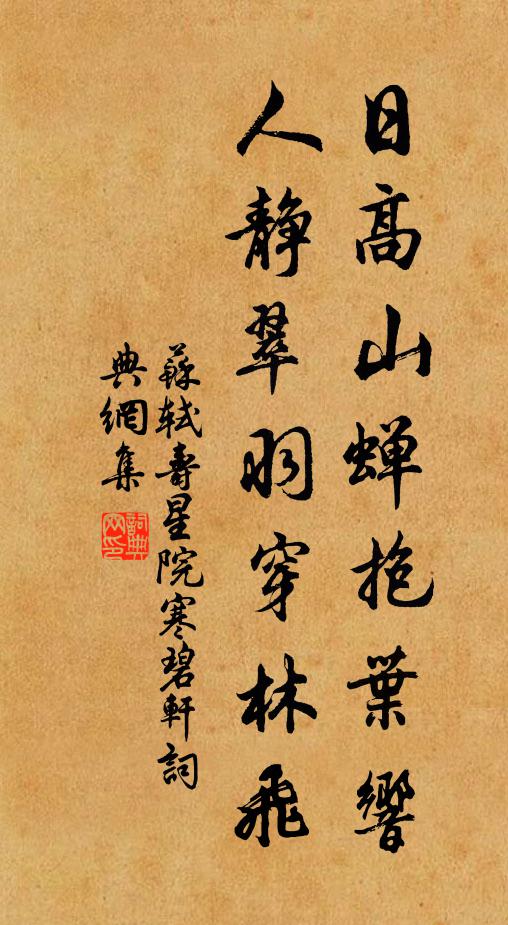 日高山蝉抱葉響
人靜翠羽穿林飛
蘇軾壽星院寒碧軒詞
典網集
詞典网印